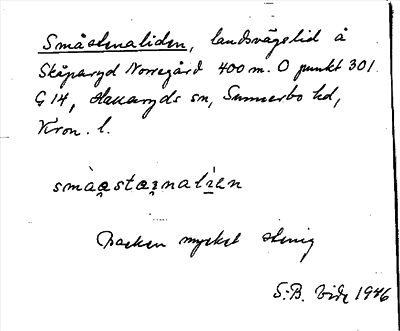 Småstenaliden, landsvägslid å
Skåparyd Norregård 400 m. O punkt 301
G 14, Hallaryds sn, Sunnerbo hd,
Kron. l.
småa̤staɪ̤nalìɛn
Backen mycket stenig
S.B. Vide 1946